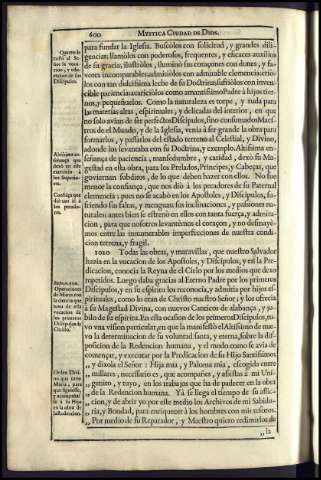 600 MYSTICA CIUDAD DE DIOS.
para fundar la Iglesia. Buscòlos con solicitud, y grandes dili-
gencias; llamòlos con poderosos, frequentes, y eficaces auxilios
de su gracia, ilustròlos, iluminò sus coraçones con dones, y fa-
vores incomparables: admitiòlos con admirable clemencia: criò-
los con tan dulcissima leche de su Doctrina: sufriòlos con inven-
cible paciencia: acariciòlos como amantissimo Padre à hijos tier-
nos, y pequeñuelos. Como la naturaleza es torpe, y ruda para
las materias altas, espirituales, y delicadas del interior, en que
no solo avian de ser perfectos Discipulos, sino consumados Maes-
tros de el Mundo, y de la Iglesia, venia à ser grande la obra para
formarlos, y passarlos del estado terreno al Celestial, y Divino,
adonde los levantaba con su Doctrina, y exemplo. Altissima en-
señança de paciencia, mansedumbre, y caridad, dexò su Ma-
gestad en esta obra, para los Prelados, Principes, y Cabeças, que
goviernan subditos, de lo que deben hazer con ellos. No fue
menor la confiança, que nos diò à los pecadores de su Paternal
clemencia; pues no se acabò en los Apostoles, y Discipulos, su-
friendo sus faltas, y menguas, sus inclinaciones, y passiones na-
turales: antes bien se estrenò en ellos con tanta fuerça, y admira-
cion, para que nosotros levantèmos el coraçon, y no desmaye-
mos entre las innumerables imperfecciones de nuestra condi-
cion terrena, y fragil.
1020 Todas las obras, y maravillas, que nuestro Salvador
hazia en la vocacion de los Apostoles, y Discipulos, y en la Pre-
dicacion, conocia la Reyna de el Cielo por los medios que dexo
repetidos. Luego daba gracias al Eterno Padre por los primeros
Discipulos, y en su espiritu los reconocia, y admitia por hijos es-
pirituales, como lo eran de Christo nuestro Señor; y los ofrecia
à su Magestad Divina, con nuevos Canticos de alabança, y ju-
bilo de su espiritu. En esta ocasion de los primeros Discipulos, tu-
vo una vision particular, en que la manifestò el Altissimo de nue-
vo la determinacion de su voluntad santa, y eterna, sobre la dis-
posicion de la Redencion humana, y el modo como se avia de
començar, y executar por la Predicacion de su Hijo Santissimo;
,, y dixola el Señor: Hija mia, y Paloma mia, escogida entre
,, millares, necessario es, que acompañes, y assistas à mi Uni-
,, genito, y tuyo, en los trabajos que ha de padecer en la obra
,, de la Redencion humana. Yà se llega el tiempo de su aflic-
,, cion, y de abrir yo por este medio los Archivos de mi Sabidu-
,, ria, y Bondad, para enriquecer à los hombres con mis tesoros.
,, Por medio de su Reparador, y Maestro quiero redimirlos de
,, la